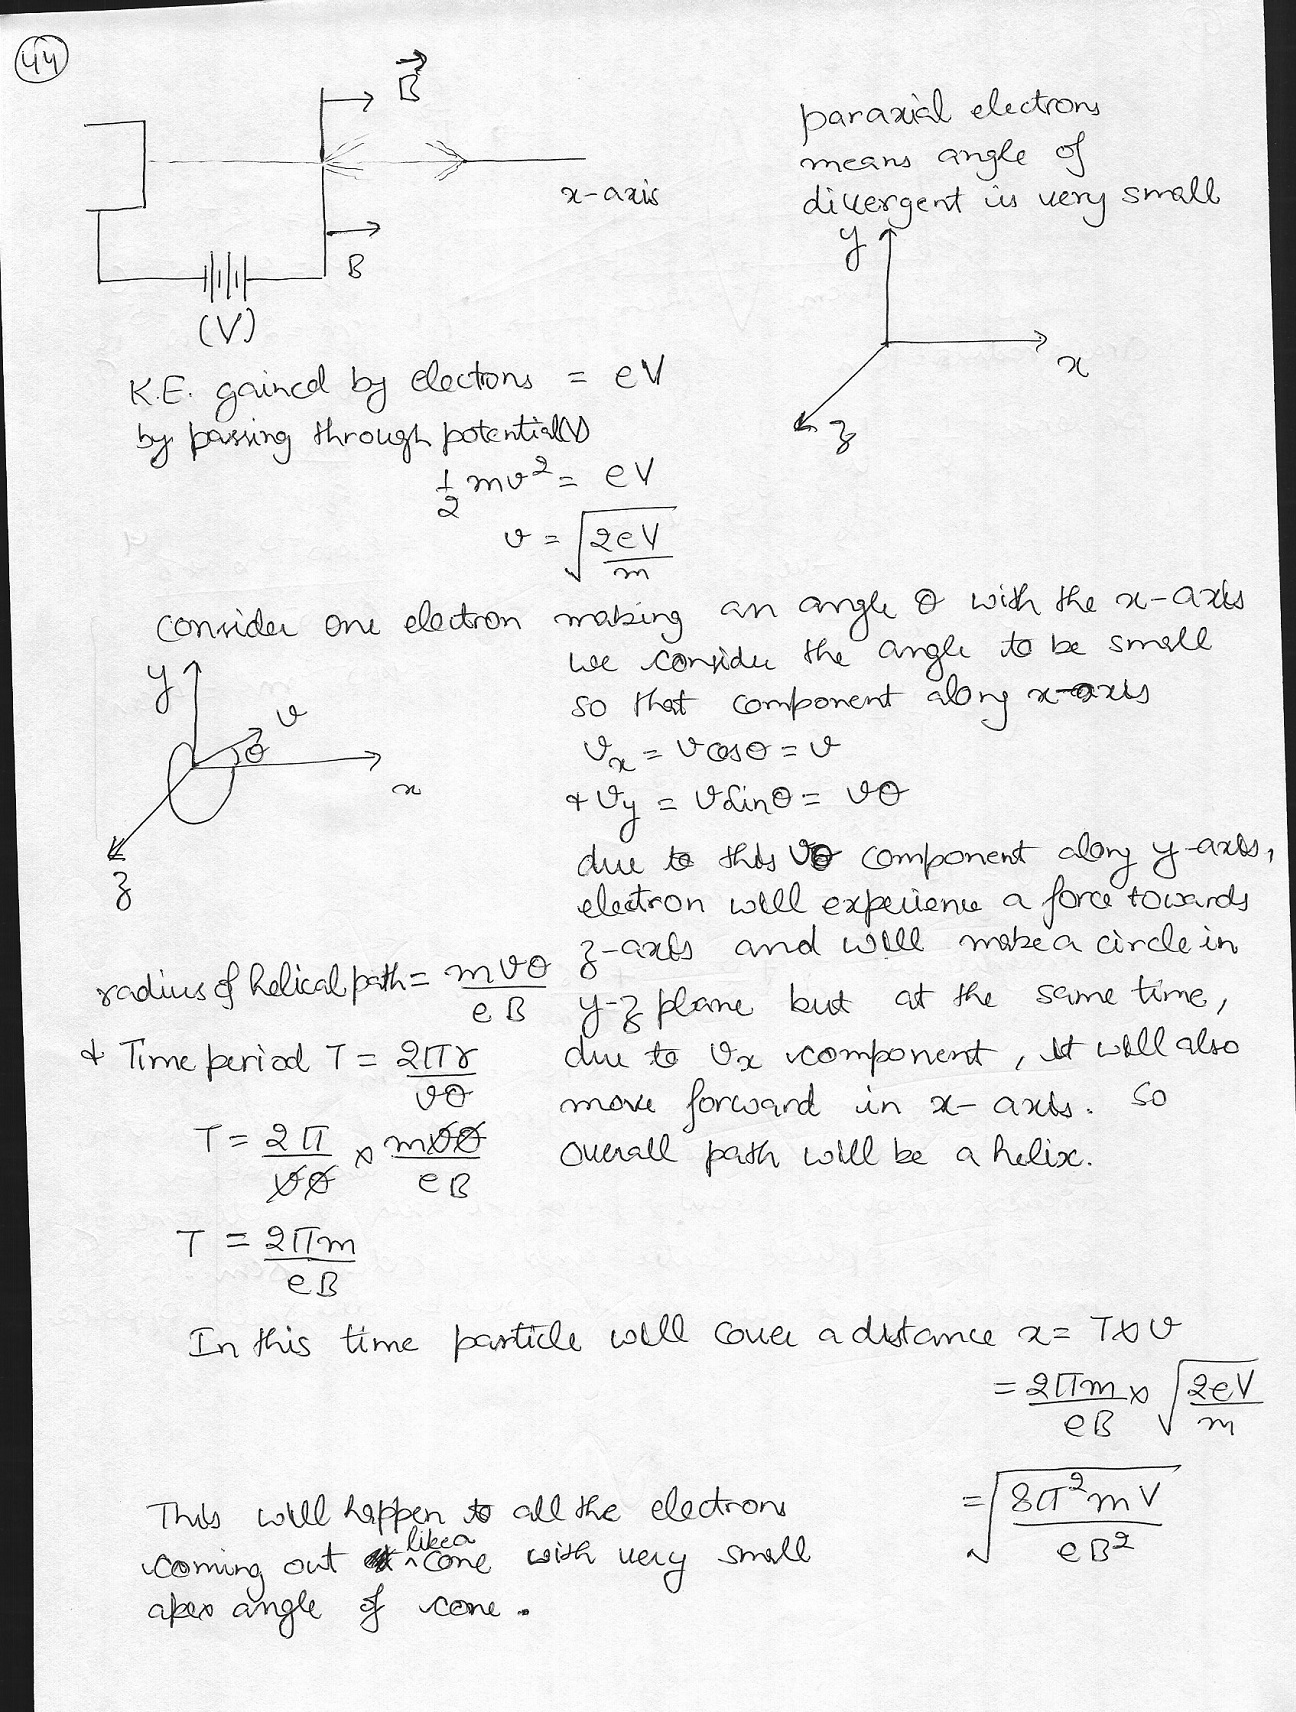 44
B⃗
x-axis
B
(V)
paraxial electrons
means angle of
divergent is very small
y
x
z
K.E. gained by electrons = eV
by passing through potential(V)
1/2 mv² = eV
v = √(2eV/m)
consider one electron making an angle θ with the x-axis
we consider the angle to be small
so that component along x-axis
vₓ = v cosθ = v
& v_y = v sinθ = vθ
y
v
θ
x
z
due to this vθ component along y-axis,
electron will experience a force towards
z-axis and will make a circle in
y-z plane but at the same time,
due to vₓ component, it will also
move forward in x-axis. so
overall path will be a helix.
radius of helical path = mvθ/eB
& Time period T = 2πr/vθ
T = 2π/vθ × mvθ/eB
T = 2πm/eB
In this time particle will cover a distance x = T×v
= 2πm/eB × √(2eV/m)
= √(8π²mV/eB²)
This will happen to all the electrons
coming out like a cone with very small
apex angle of cone.